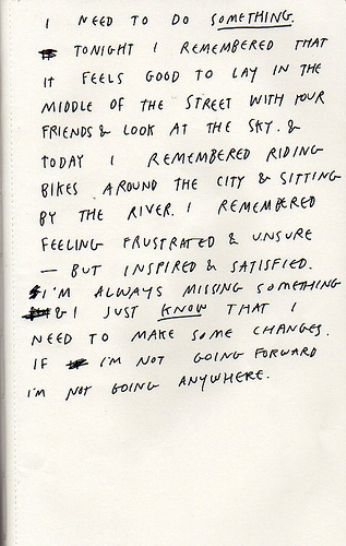 I NEED TO DO SOMETHING.
TONIGHT I REMEMBERED THAT
IT FEELS GOOD TO LAY IN THE
MIDDLE OF THE STREET WITH YOUR
FRIENDS & LOOK AT THE SKY. &
TODAY I REMEMBERED RIDING
BIKES AROUND THE CITY & SITTING
BY THE RIVER. I REMEMBERED
FEELING FRUSTRATED & UNSURE
— BUT INSPIRED & SATISFIED.
I'M ALWAYS MISSING SOMETHING
& I JUST KNOW THAT I
NEED TO MAKE SOME CHANGES.
IF I'M NOT GOING FORWARD
I'M NOT GOING ANYWHERE.